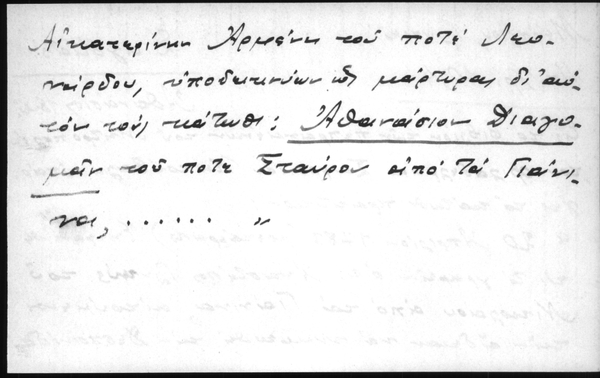 Αἰκατερίνη Ἀρμένη τοῦ ποτέ Λεο-
νάρδου, ὑποδεικνύων ὡς μάρτυρας δι' αὐ-
τόν τούς κάτωθι: Ἀθανάσιον Διαγο-
μᾶν τοῦ ποτε Σταύρου ἀπό τά Γιάννι-
να, ...... "